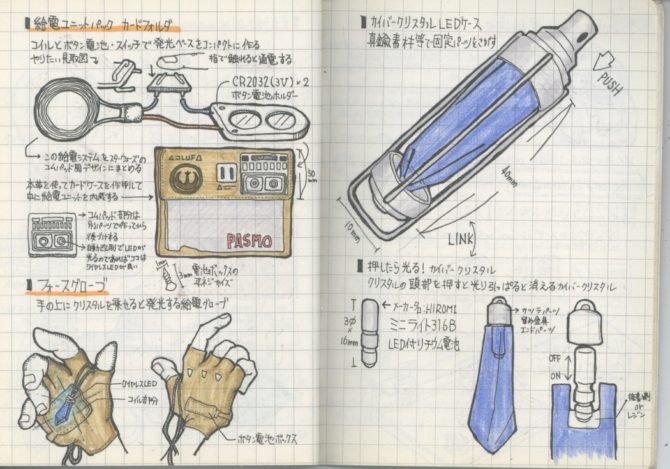 給電ユニットパック カードフォルダ
コイルとボタン電池・スイッチで発光ベースをコンパクトに作る
ヤリたい見取図
指で触れると通電する
CR2032(3V)×2
ボタン電池ホルダー
この給電システムをスターウォーズの
コムパッド風デザインにまとめる
本革を使ってカードケースを作成して
中に給電ユニットを内蔵する
50mm
PASMO
コムパッド部分は
3mm
電池ボックスの
フォースグローブ
手の上にクリスタルを乗せると発光する給電グローブ
ワイヤレスLED
コイル部分
ボタン電池ボックス
カイバークリスタルLEDケース
真鍮素材等で固定パーツをさがす
PUSH
40mm
10mm
LINK
押したら光る!カイバークリスタル
クリスタルの頭部を押すと光り引っぱると消えるカイバークリスタル
メーカー名:HIROMI
ミニライト316B
LED付リチウム電池
3φ
×
16mm
カツラパーツ
留め金具
エンドパーツ
OFF
ON
接着剤
or
レジン